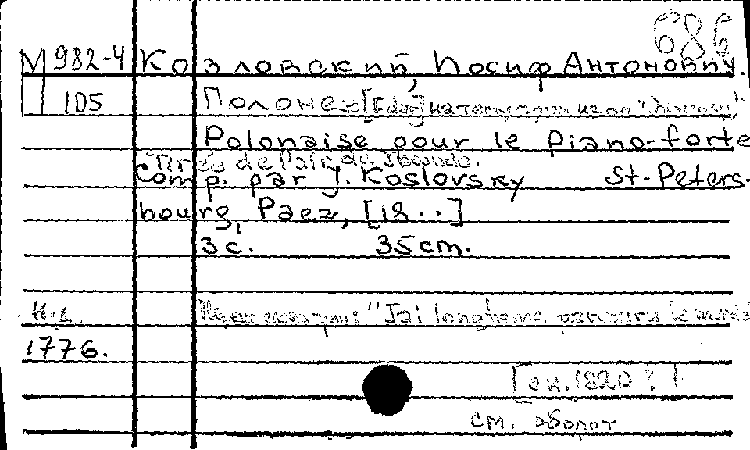 686
М 982-4 Козловский, Иосиф Антонович.
105 Полонез
Polonaise pour le piano-forte
Tirée de l'air de Joconde.
comp. par J. Koslovsky St-Peters-
bourg, Paez, [18..]
3 с. 35 cm.
"J'ai longtems parcouru le monde
1776.
[ок. 1820?]
см. оборот